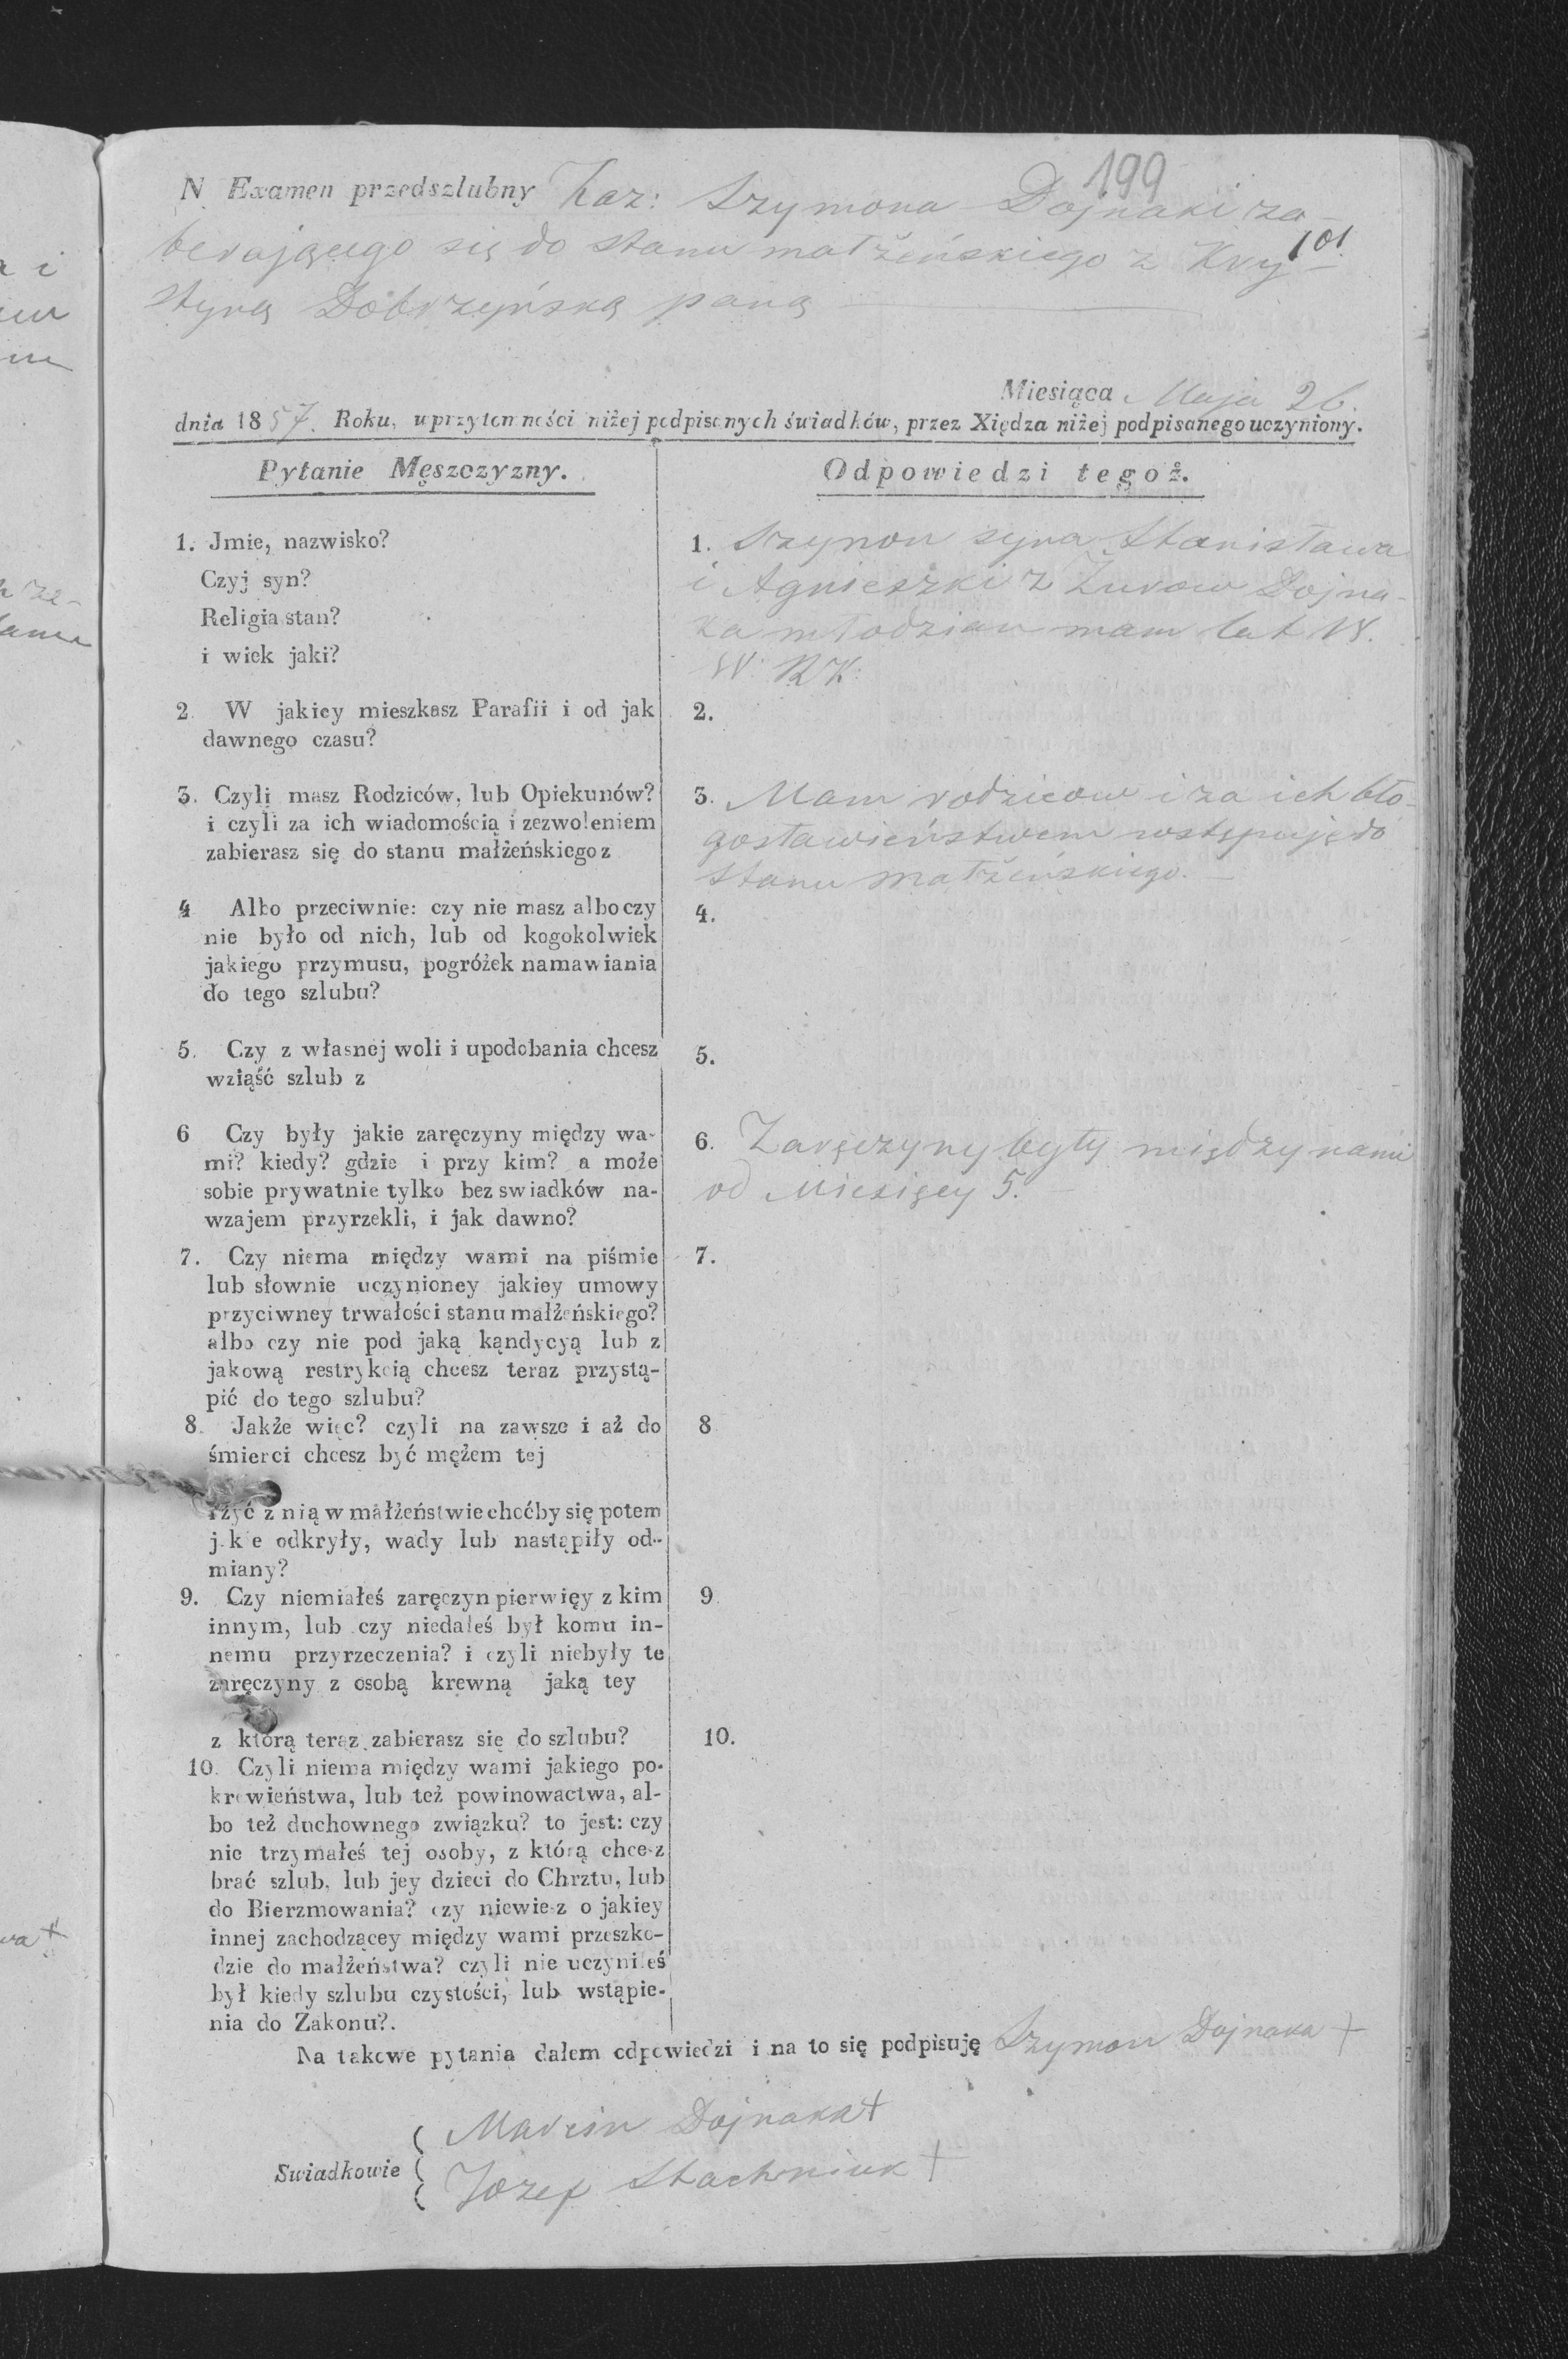 199
N Examen przedszlubny Kaz: Szymona Dojnaki za-
101.
berającego się do stanu małżeńskiego z Kry-
styną Dobrzyńską paną
Miesiąca Maja 26.
dnia 1857. Roku, w przytomności niżej podpisanych świadków, przez Xiędza niżej podpisanego uczyniony.
Pytanie Męszczyzny.
Odpowiedzi tegoż.
1. Jmie, nazwisko?
Czyj syn?
Religia stan?
i wiek jaki?
1. Szymon syna Stanisława
i Agnieszki z Żurow Dojna-
ka młodzian mam lat
W. RK:
2. W jakiey mieszkasz Parafii i od jak
dawnego czasu?
2.
3. Czyli masz Rodziców, lub Opiekunów?
i czyli za ich wiadomością i zezwoleniem
zabierasz się do stanu małżeńskiego z
3. Mam rodzicow i za ich bło-
gosławieństwem wstępuję do
stanu małżeńskiego.
4 Albo przeciwnie: czy nie masz albo czy
nie było od nich, lub od kogokolwiek
jakiego przymusu, pogróżek namawiania
do tego szlubu?
4.
5. Czy z własnej woli i upodobania chcesz
wziąść szlub z
5.
6 Czy były jakie zaręczyny między wa-
mi? kiedy? gdzie i przy kim? a może
sobie prywatnie tylko bez swiadków na-
wzajem przyrzekli, i jak dawno?
6. Zaręczyny były między nami
od Miesięcy 5.
7. Czy niema między wami na piśmie
lub słownie uczynioney jakiey umowy
przyciwney trwałości stanu małżeńskiego?
albo czy nie pod jaką kądycyą lub z
jakową restrykcią chcesz teraz przystą-
pić do tego szlubu?
7.
8. Jakże więc? czyli na zawsze i aż do
śmierci chcesz być mężem tej
i żyć z nią w małżeństwie choćby się potem
jakie odkryły, wady lub nastąpiły od-
miany?
8
9. Czy niemiałeś zaręczyn pierwięy z kim
innym, lub czy niedałeś był komu in-
nemu przyrzeczenia? i czyli niebyły te
zaręczyny z osobą krewną jaką tey
z którą teraz zabierasz się do szlubu?
9.
10. Czyli niema między wami jakiego po-
krewieństwa, lub też powinowactwa, al-
bo też duchownego związku? to jest: czy
nie trzymałeś tej osoby, z którą chcesz
brać szlub, lub jey dzieci do Chrztu, lub
do Bierzmowania? czy niewiesz o jakiey
innej zachodzącey między wami przeszko-
dzie do małżeństwa? czyli nie uczyniłeś
był kiedy szlubu czystości, lub wstąpie-
nia do Zakonu?.
10.
Na takowe pytania dałem odpowiedzi i na to się podpisuję Szymon Dojnaka +
Swiadkowie
Marcin Dojnaka +
Jozef Stachniuk +